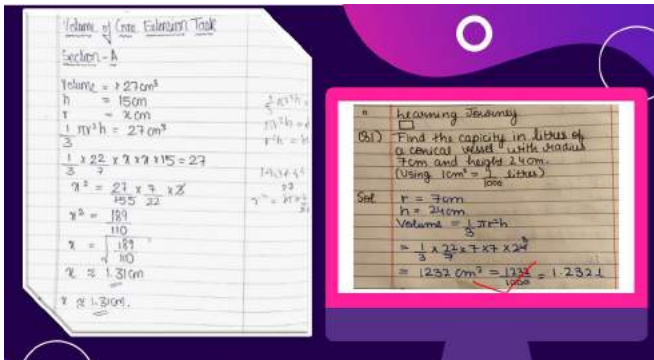 Volume of Cone Extension Task
Section - A
Volume = 27cm³
h = 15cm
r = xcm
1/3 πr²h = 27cm³
1/3 × 22/7 × x × x × 15 = 27
x² = 27/155 × 7/22 × 3
x² = 189/110
x = √189/110
x ≈ 1.31cm
x ≈ 1.31cm.
Learning Journey
Q1) Find the capicity in litres of
a conical vessel with radius
7cm and height 24cm.
(Using 1cm³ = 1/1000 litres)
Sol r = 7cm
h = 24cm
Volume = 1/3 πr²h
= 1/3 × 22/7 × 7 × 7 × 24
= 1232 cm³ = 1232/1000 = 1.232l